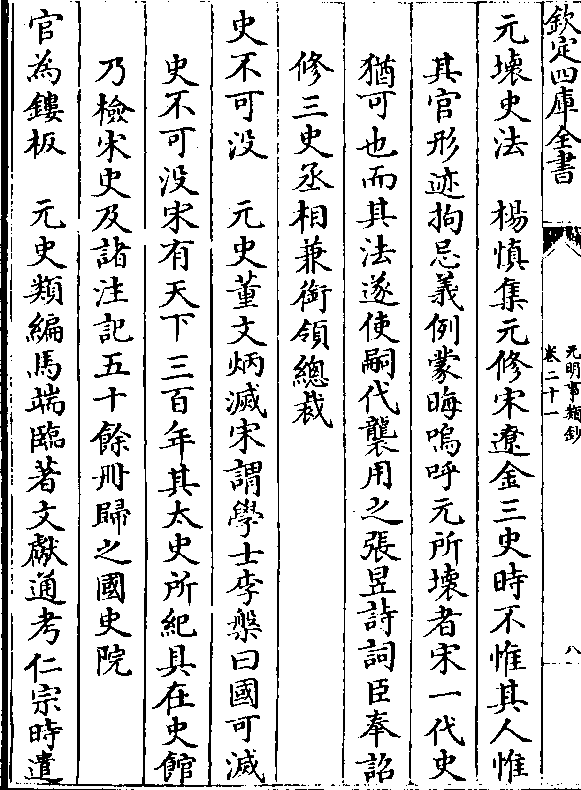 欽定四庫全書
元明事類鈔
卷二十一
八
元壞史法　楊慎集元修宋遼金三史時不惟其人惟
其官形迹拘忌義例蒙晦嗚呼元所壞者宋一代史
猶可也而其法遂使嗣代襲用之張昱詩詞臣奉詔
修三史丞相兼銜領總裁
史不可没　元史董文炳滅宋謂學士李槃曰國可滅
史不可没宋有天下三百年其太史所紀具在史館
乃檢宋史及諸注記五十餘冊歸之國史院
官為鏤板　元史類編馬端臨著文獻通考仁宗時遣